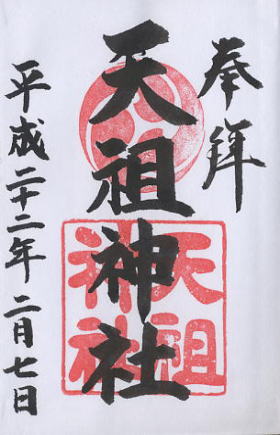 奉拝
天祖神社
天祖神社
平成二十二年二月七日